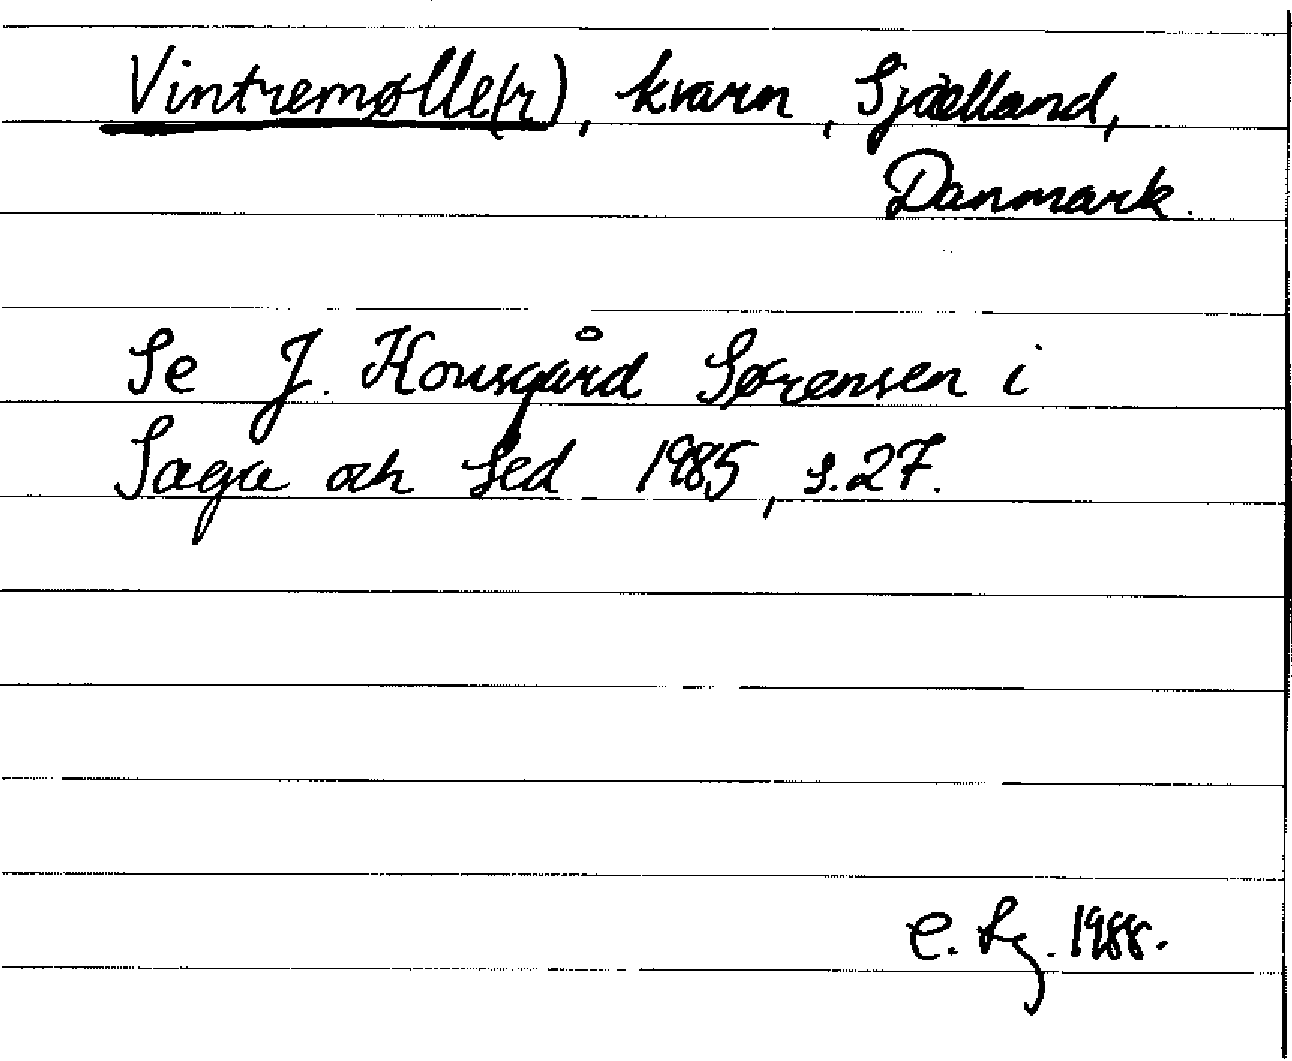 Vintremølle(r), kvarn, Sjælland,
Danmark.
Se J. Kousgård Sørensen i
Saga och Sed 1985, s.27.
C. Sg. 1988.